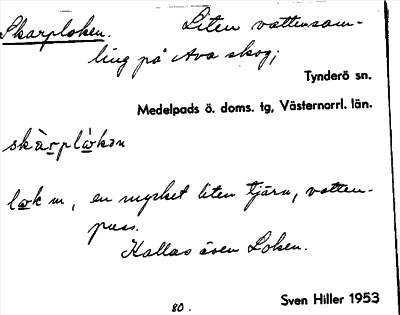 Skarploken. Liten vattensam-
ling på Ava skog;
Tynderö sn.
Medelpads ö. doms. tg, Västernorrl. län.
skàrplåkən
låk m, en mycket liten tjärn, vatten-
puss.
Kallas även Loken.
80.
Sven Hiller 1953